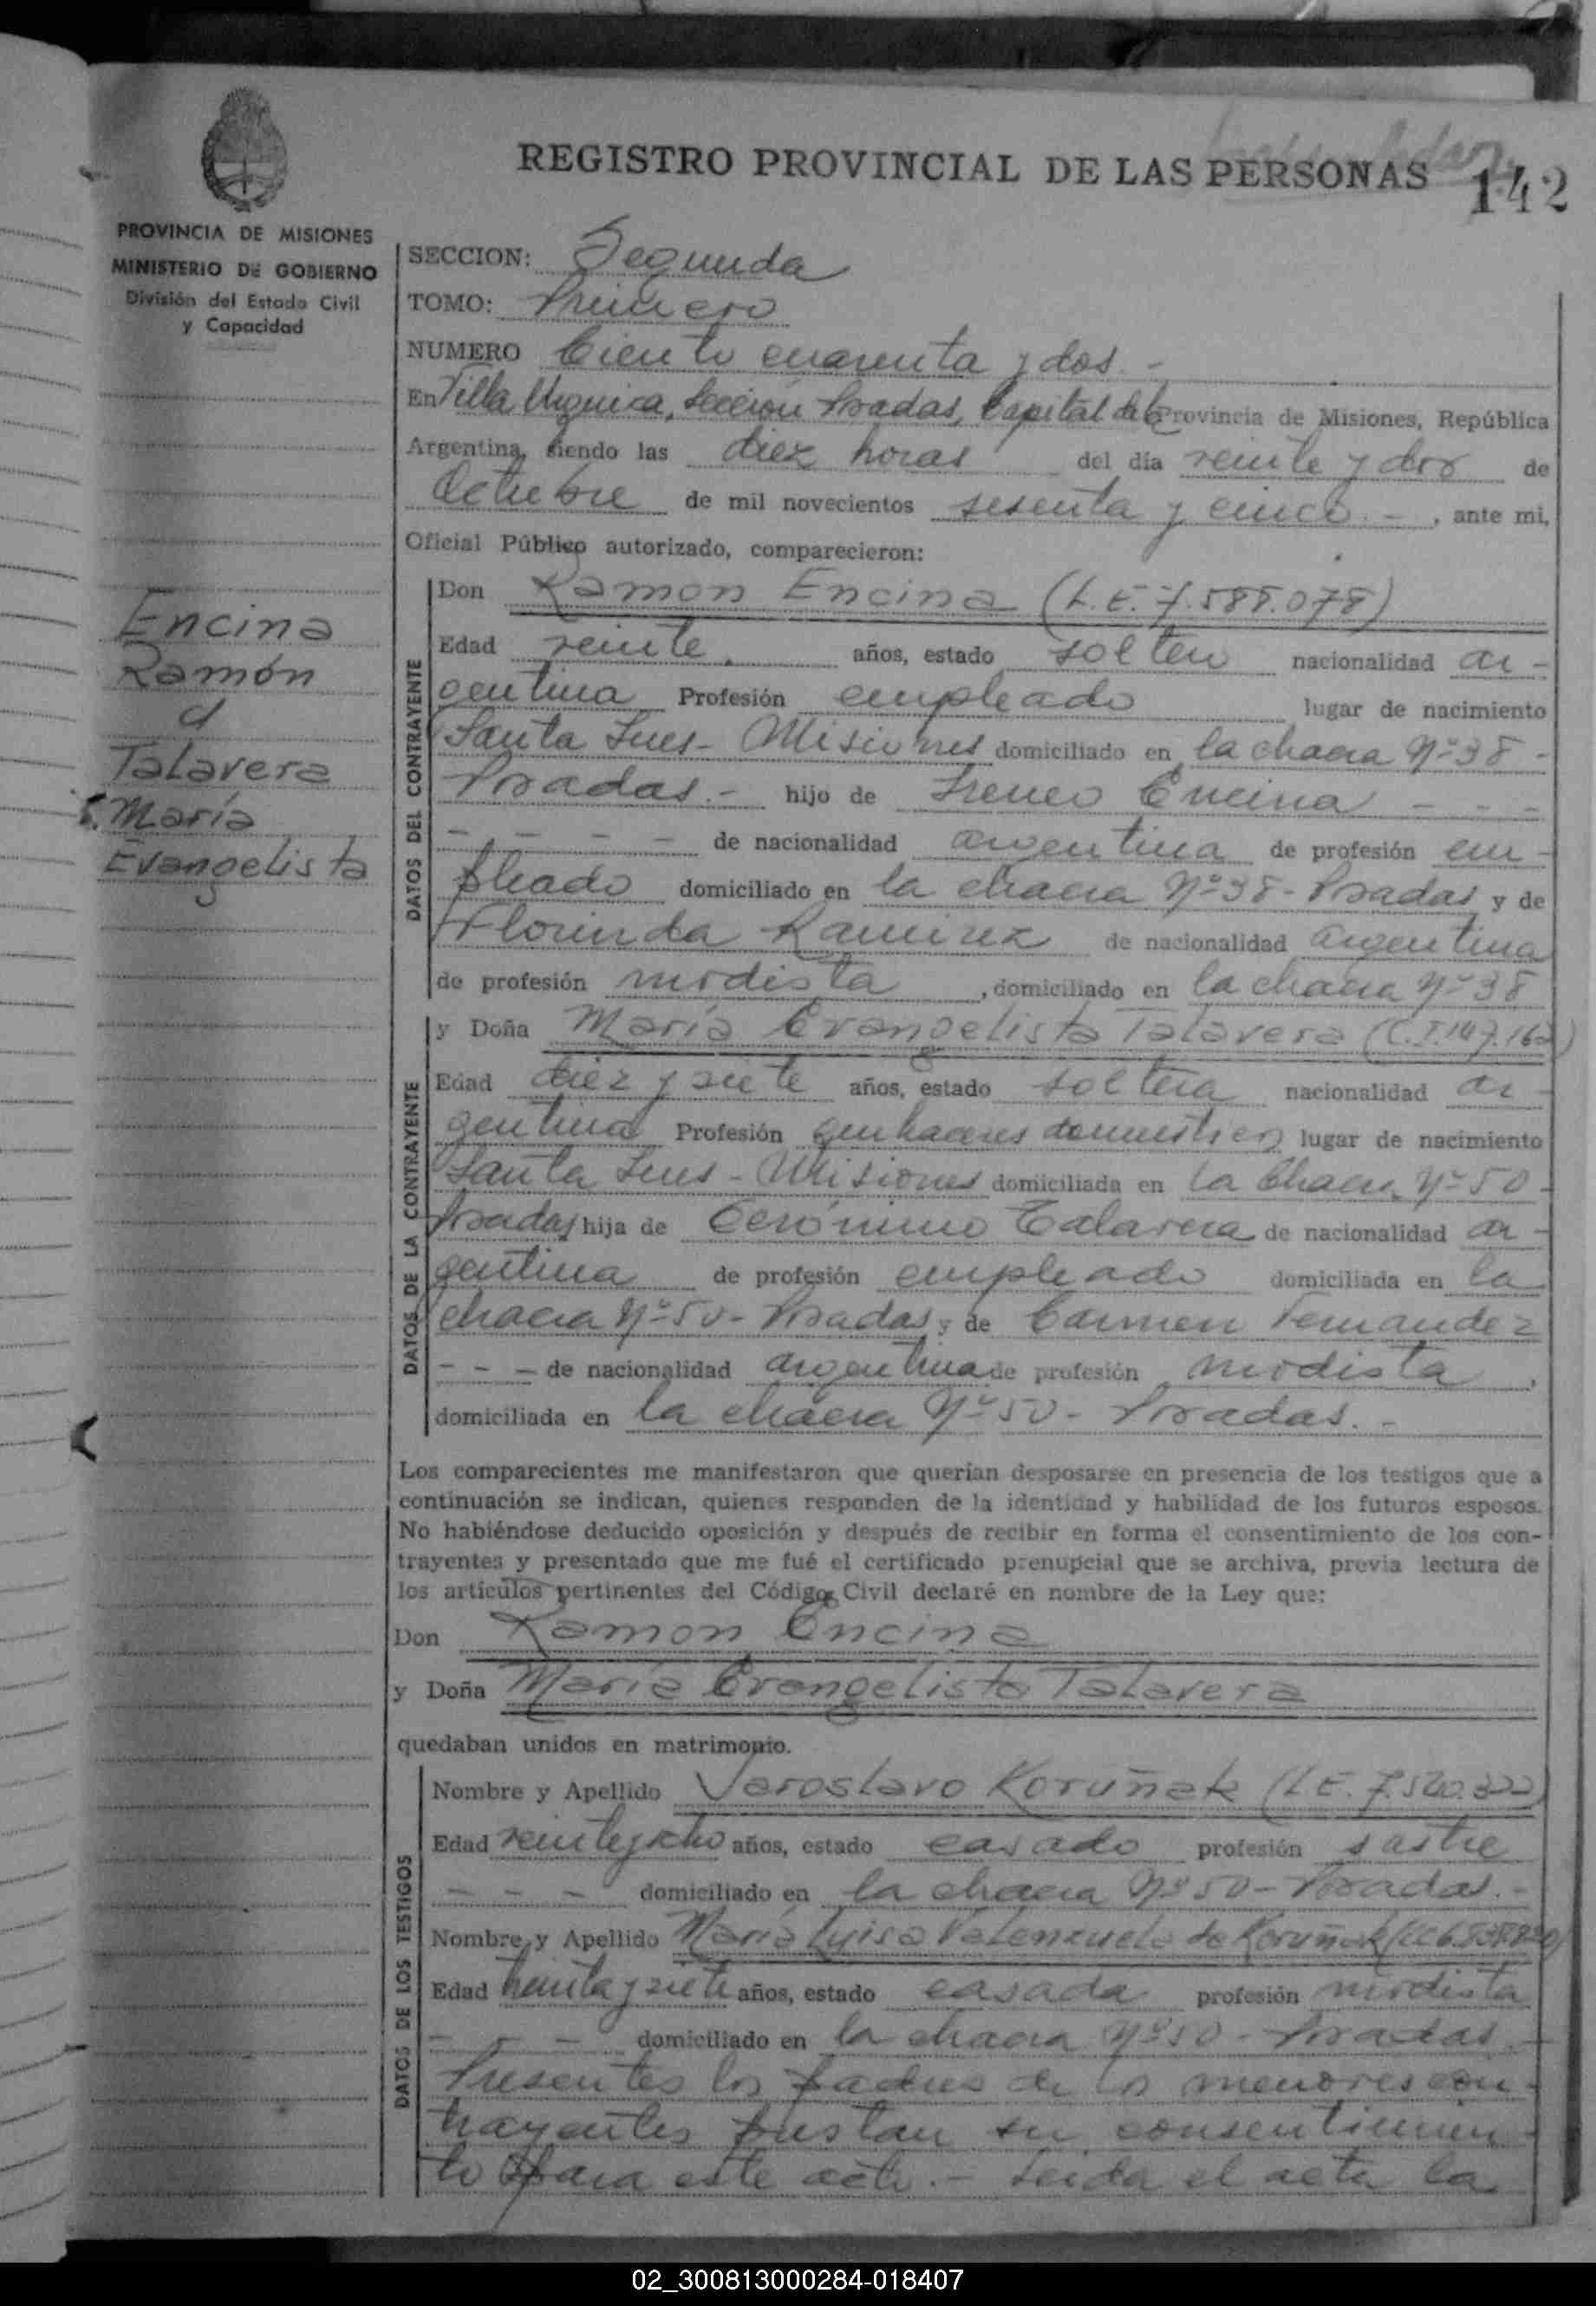 REGISTRO PROVINCIAL DE LAS PERSONAS
142
PROVINCIA DE MISIONES
MINISTERIO DE GOBIERNO
División del Estado Civil
y Capacidad
Encina
Ramón
y
Talavera
María
Evangelista
SECCION: Segunda
TOMO: Primero
NUMERO Ciento cuarenta y dos.-
En Villa Urquiza, Sección Posadas, Capital de la Provincia de Misiones, República
Argentina, siendo las diez horas del día veinte y dos de
Octubre de mil novecientos sesenta y cinco.-, ante mi,
Oficial Público autorizado, comparecieron:
DATOS DEL CONTRAYENTE
Don Ramon Encina (L.E. 7.588.078)
Edad veinte años, estado soltero nacionalidad ar-
gentina Profesión empleado lugar de nacimiento
Santa Ines - Misiones domiciliado en la chacra Nº 38-
Posadas.- hijo de Ireneo Encina - - -
- - - - de nacionalidad argentina de profesión em-
pleado domiciliado en la chacra Nº 38 - Posadas y de
Florinda Ramirez de nacionalidad argentina
de profesión modista, domiciliado en la chacra Nº 38
DATOS DE LA CONTRAYENTE
y Doña María Evangelista Talavera (C.I. 147.162)
Edad diez y siete años, estado soltera nacionalidad ar-
gentina Profesión quehaceres domesticos lugar de nacimiento
Santa Ines - Misiones domiciliada en la Chacra Nº 50-
Posadas hija de Gerónimo Talavera de nacionalidad ar-
gentina de profesión empleado domiciliada en la
chacra Nº 50 - Posadas y de Carmen Fernandez
- - - de nacionalidad argentina de profesión modista,
domiciliada en la chacra Nº 50 - Posadas.-
Los comparecientes me manifestaron que querían desposarse en presencia de los testigos que a
continuación se indican, quienes responden de la identidad y habilidad de los futuros esposos.
No habiéndose deducido oposición y después de recibir en forma el consentimiento de los con-
trayentes y presentado que me fué el certificado prenupcial que se archiva, previa lectura de
los artículos pertinentes del Código Civil declaré en nombre de la Ley que:
Don Ramon Encina
y Doña María Evangelista Talavera
quedaban unidos en matrimonio.
DATOS DE LOS TESTIGOS
Nombre y Apellido Jaroslavo Koruñak (L.E. 7.520.322)
Edad veinteyocho años, estado casado profesión sastre
- - - domiciliado en la chacra Nº 50 - Posadas.-
Nombre y Apellido María Luisa Valenzuela de Koruñak
Edad treinta y siete años, estado casada profesión modista
- - - domiciliado en la chacra Nº 50 - Posadas.-
Presentes los padres de los menores con-
trayentes prestan su consentimien-
to para este acto.- Leida el acta la
02_300813000284-018407